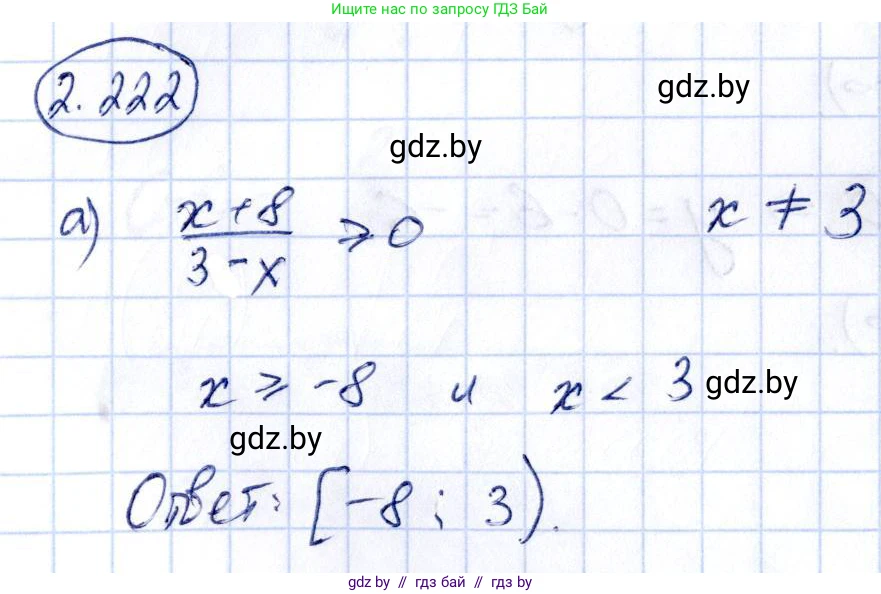 Ищите нас по запросу ГДЗ Бай
2.222
gdz.by
gdz.by
а) (x+8)/(3-x) ⩾ 0   x ≠ 3
x ⩾ -8 и x < 3
gdz.by
gdz.by
Ответ: [-8; 3).
gdz.by // гдз бай // гдз by